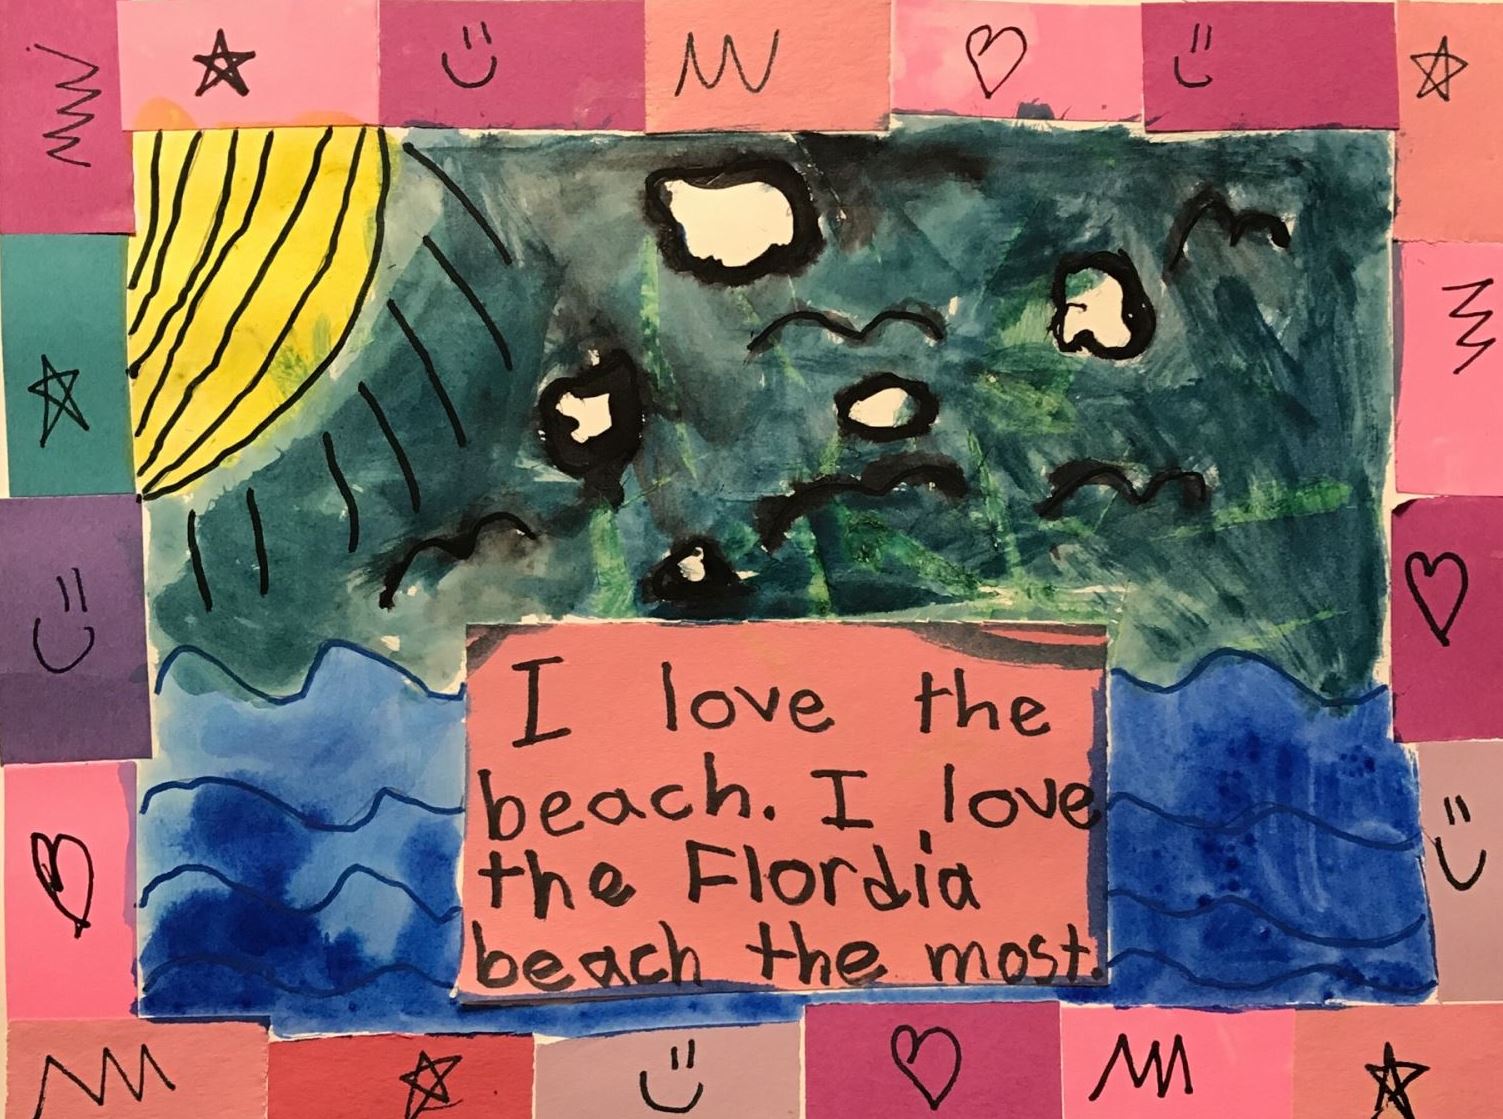 I love the
beach. I love
the Flordia
beach the most.